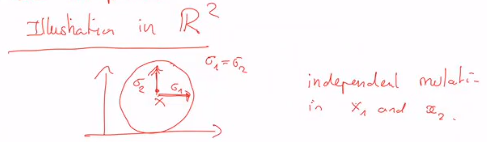 Illustration in ℝ²
σ₁=σ₂
σ₂
σ₁
x
independent mutati-
in x₁ and x₂.